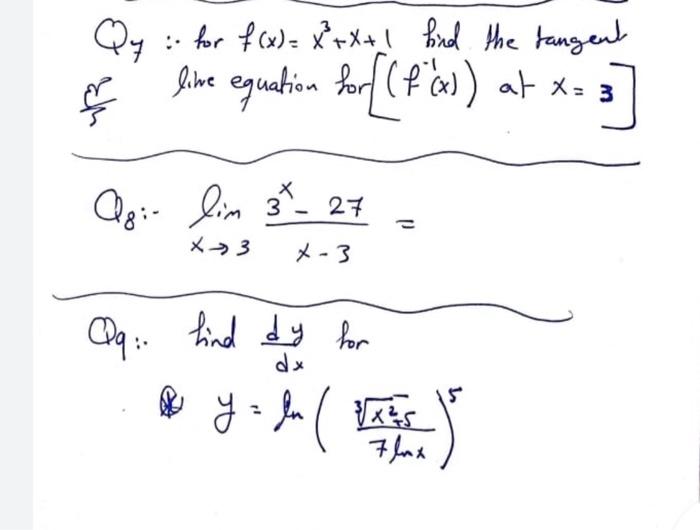 Q7 :- for f(x) = x³+x+1 find the tangent
line equation for [(f⁻¹(x)) at x = 3]
Q8:- lim 3ˣ - 27 =
x→3 x - 3
Q9:- find dy for
dx
y = ln ( ∛x²+5 )⁵
7 ln x